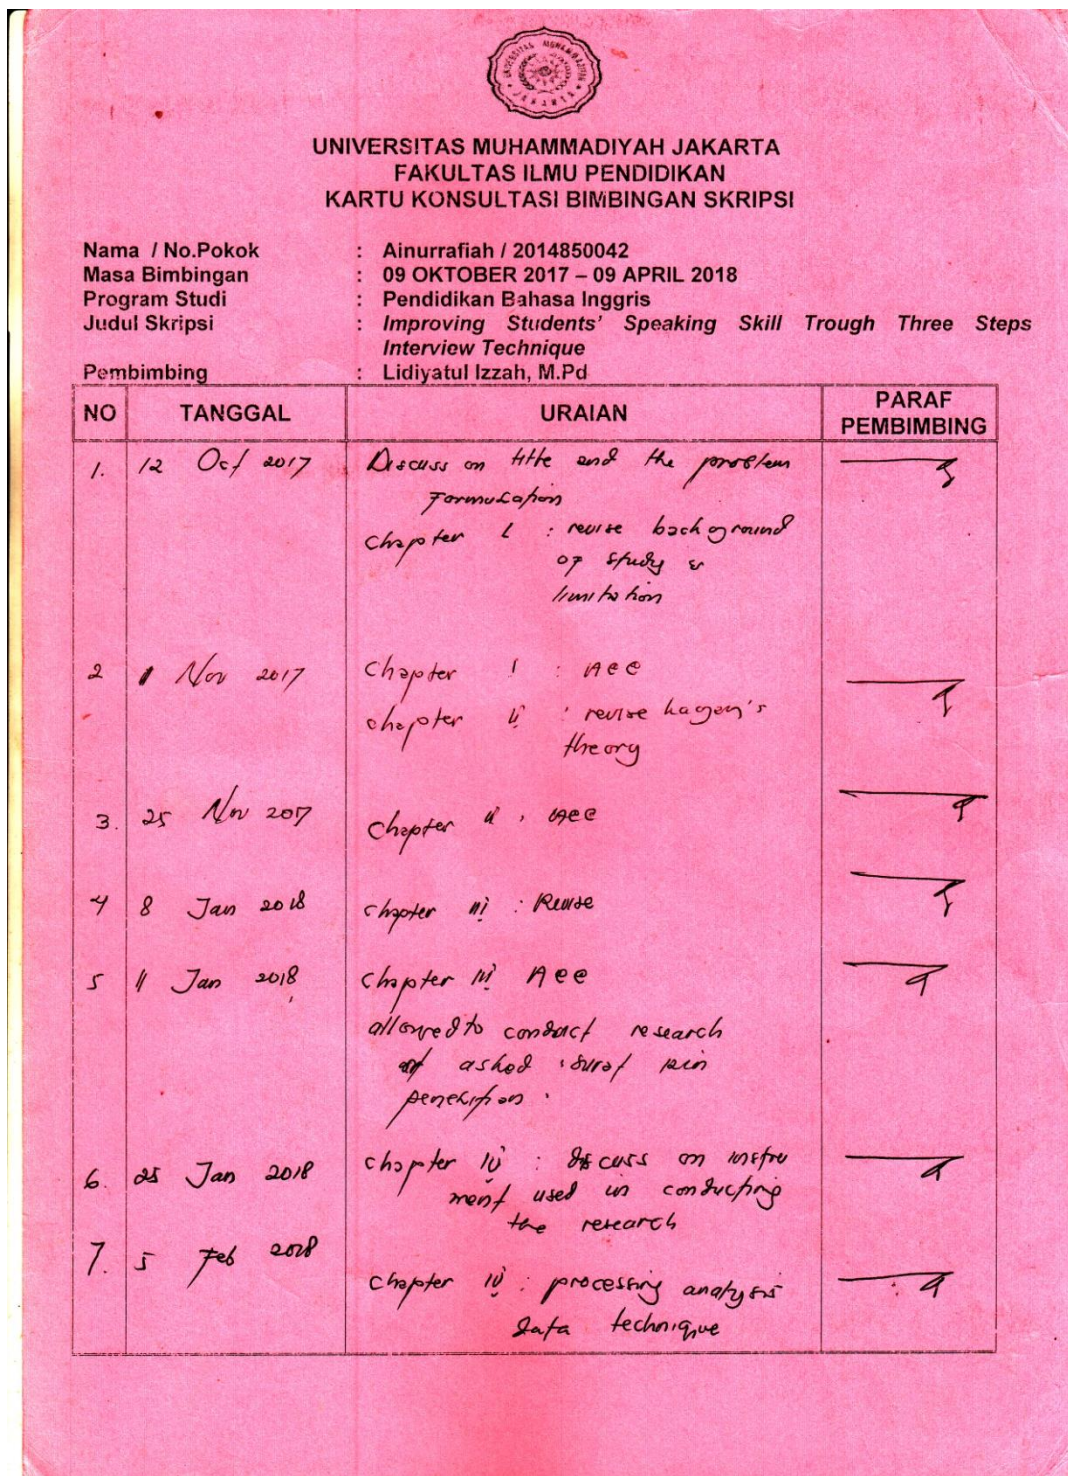 UNIVERSITAS MUHAMMADIYAH JAKARTA
FAKULTAS ILMU PENDIDIKAN
KARTU KONSULTASI BIMBINGAN SKRIPSI
Nama / No.Pokok : Ainurrafiah / 2014850042
Masa Bimbingan : 09 OKTOBER 2017 – 09 APRIL 2018
Program Studi : Pendidikan Bahasa Inggris
Judul Skripsi : Improving Students' Speaking Skill Trough Three Steps
Interview Technique
Pembimbing : Lidiyatul Izzah, M.Pd
NO TANGGAL URAIAN PARAF PEMBIMBING
1. 12 Oct 2017 Discuss on title and the problem
Formulation
Chapter I : revise background
of study &
limitation
2 1 Nov 2017 Chapter I : Acc
chapter II : revise kagan's
theory
3. 25 Nov 2017 Chapter II : Acc
4 8 Jan 2018 Chapter III : Revise
5 11 Jan 2018 Chapter III Acc
allowed to conduct research
asked surat izin
penelitian.
6. 25 Jan 2018 Chapter IV : discuss on instru
ment used in conducting
the research
7. 5 Feb 2018
Chapter IV : processing analysis
data technique